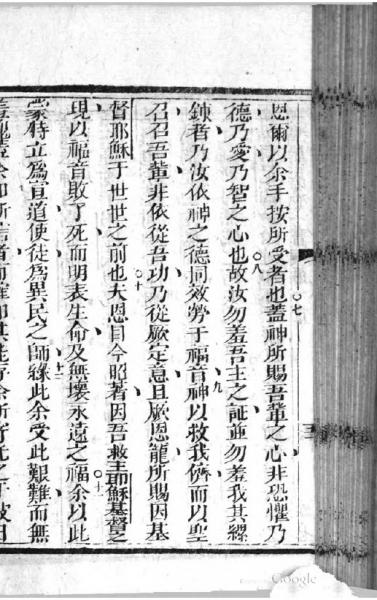 恩爾以余手按所受者也蓋神所賜吾輩之心非恐懼乃
德乃愛乃智之心也故汝勿羞吾主之証並勿羞我其縲
者乃汝依神之德同效勞于福音神以救我儕而以聖
召召吾輩非依從吾功乃從厥定意且厥恩寵所賜因基
督耶穌于世世之前也夫恩目今昭著因吾救主耶穌基督之
現以福音敗了死而明表生命及無壞永遠之福余以此
蒙特立為宣道使徒為異民之師緣此余受此艱難而無
七
八
九
十
十一
Google